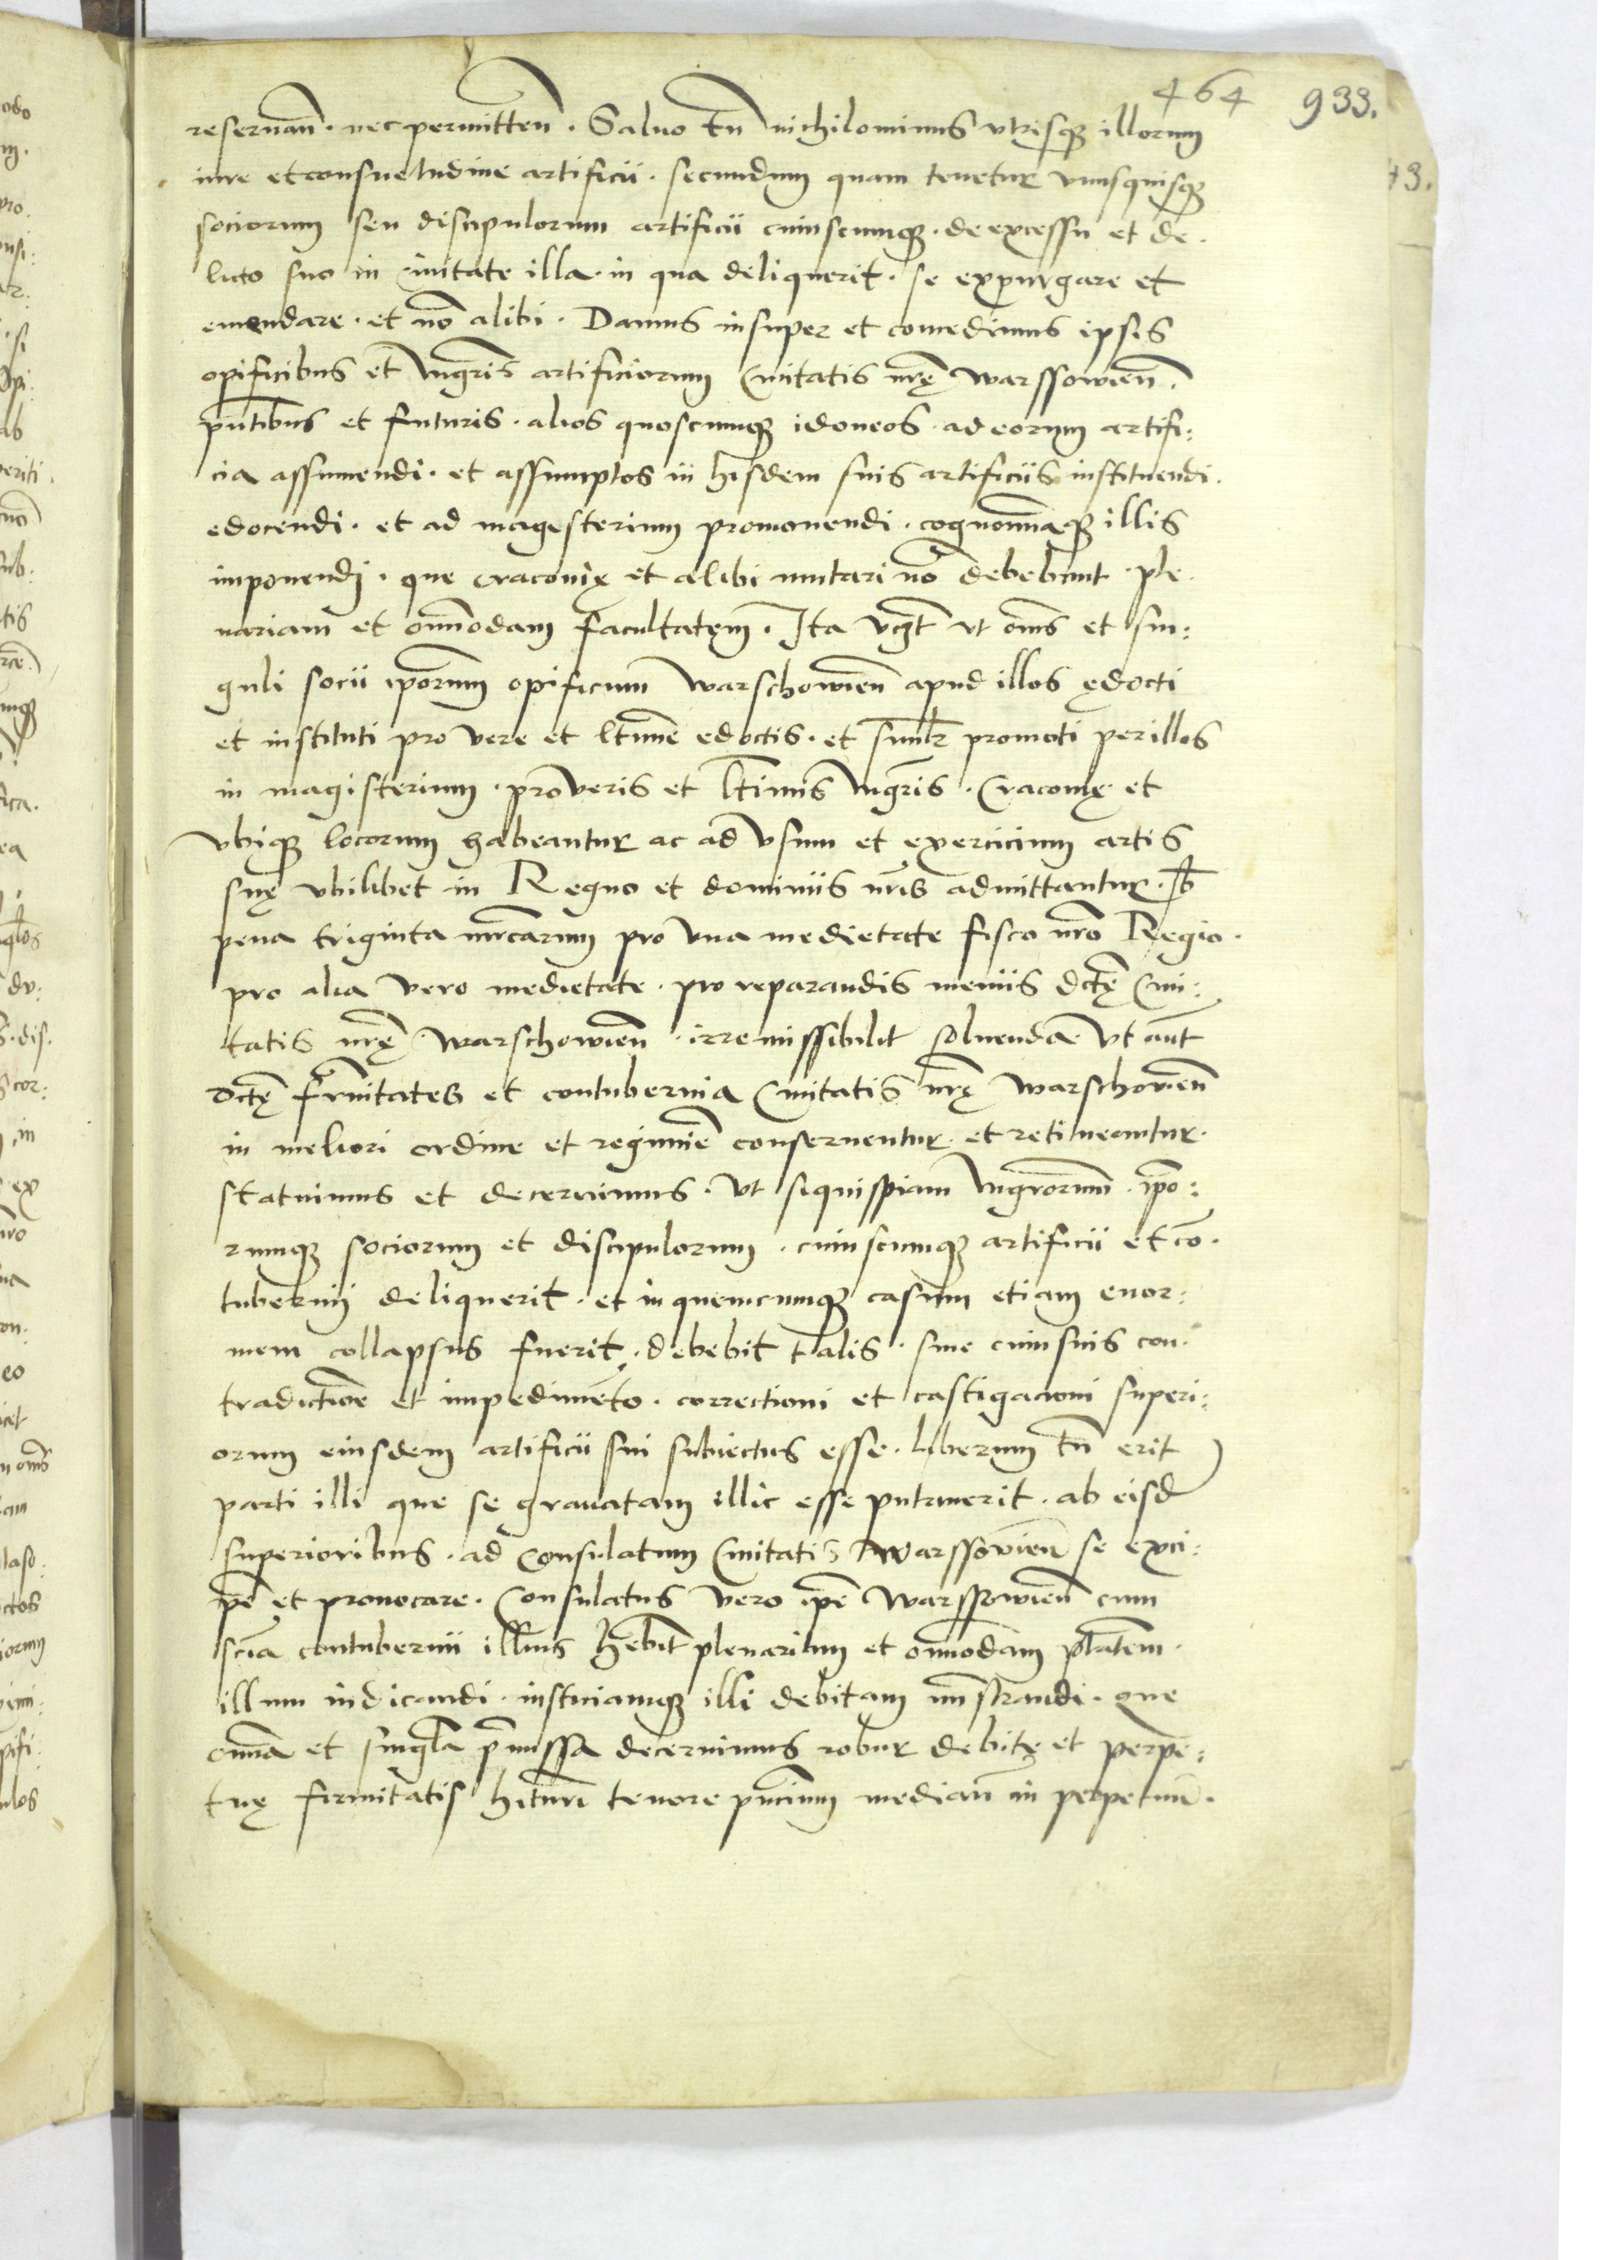 464 933.
reseruan̄. nec permitten̄. Saluo tn̄ nichilominus vtrisque illorum
iure et consuetudine artificii. secundum quam tenetur vnusquisque
sociorum seu discipulorum artificii cuiuscumque. de excessu et de.
licto suo in ciuitate illa. in qua deliquerit. se expurgare et
emendare. et nō alibi. Damus insuper et concedimus ipsis
opificibus et mgr̄is artificiorum Ciuitatis nr̄ę warssowien̄.
pn̄tibus et futuris. alios quoscumque idoneos. ad eorum artifi:
cia assumendi. et assumptos in hisdem suis artificiis instituendi.
edocendi. et ad magesterium promouendi. cognominaque illis
imponendi. que cracouię et alibi mutari nō debebunt. ple.
nariam et om̄imodam facultatem. Ita vcȝt vt om̄s et sin:
guli socii ip̄orum opificum warschowien̄ apud illos ędocti
et instituti pro vere et ltīme edoctis. et simlr̄ promoti per illos
in magisterium. pro veris et ltīmis mgr̄is. Cracouię et
vbique locorum habeantur ac ad vsum et exercicium artis
suę vbilibet in Regno et dominiis nr̄is admittantur. sb̄
pena triginta mrcarum pro vna medietate fisco nr̄o Regio.
pro alia vero medietate. pro reparandis meniis dctę Ciui:
tatis nr̄ę warschowien̄. irremissibilit̄ soluenda vt aūt
dctę frn̄itates et contubernia Ciuitatis nr̄ę warschowien̄
in meliori ordine et regimīe conseruentur. et retineantur.
statuimus et decernimus. vt siquispiam mgr̄orum. ip̄o:
rumque sociorum et discipulorum. cuiuscumque artificii et cō.
tubernii deliquerit. et in quemcumque casum etiam enor:
mem collapsus fuerit. debebit talis. sine cuiusuis con.
tradictiōe et impedimēto. correctioni et castigacioni superi:
orum eiusdem artificii sui subiectus esse. liberum tn̄ erit
parti illi que se grauatam illic esse putauerit. ab eisd
superioribus. ad Consulatum Ciuitatis warssowien̄ se exci:
pē et prouocare. Consulatus vero ip̄e warssowien̄ cum
scīa contubernii illius hēbit plenarium et om̄imodam ptātem.
illum iudicandi. iusticiamque illi debitam mīstrandi. que
om̄ia et singl̄a p̄missa decernimus robur debitę et perpe:
tuę firmitatis hītura tenore pn̄cium median̄ in perpetuū.